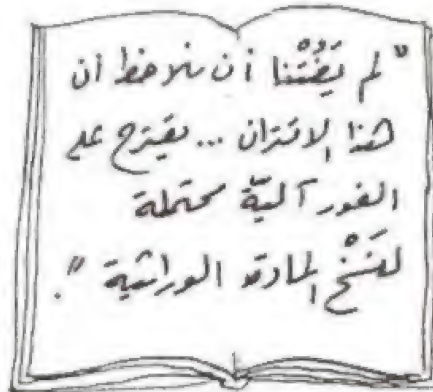 "لم يَفُتْنا أن نلاحظ أن
هذا الاقتران ... يقترح على
الفور آليّة محتملة
لنَسْخ المادة الوراثية".